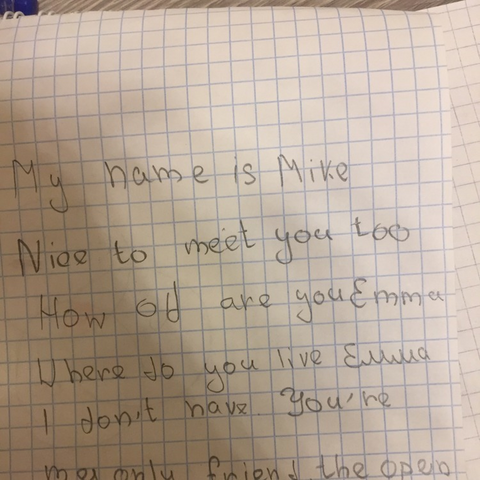 My name is Mike
Nice to meet you too
How od are you Emma
Where do you live Emma
I don't have You're
only friend the open